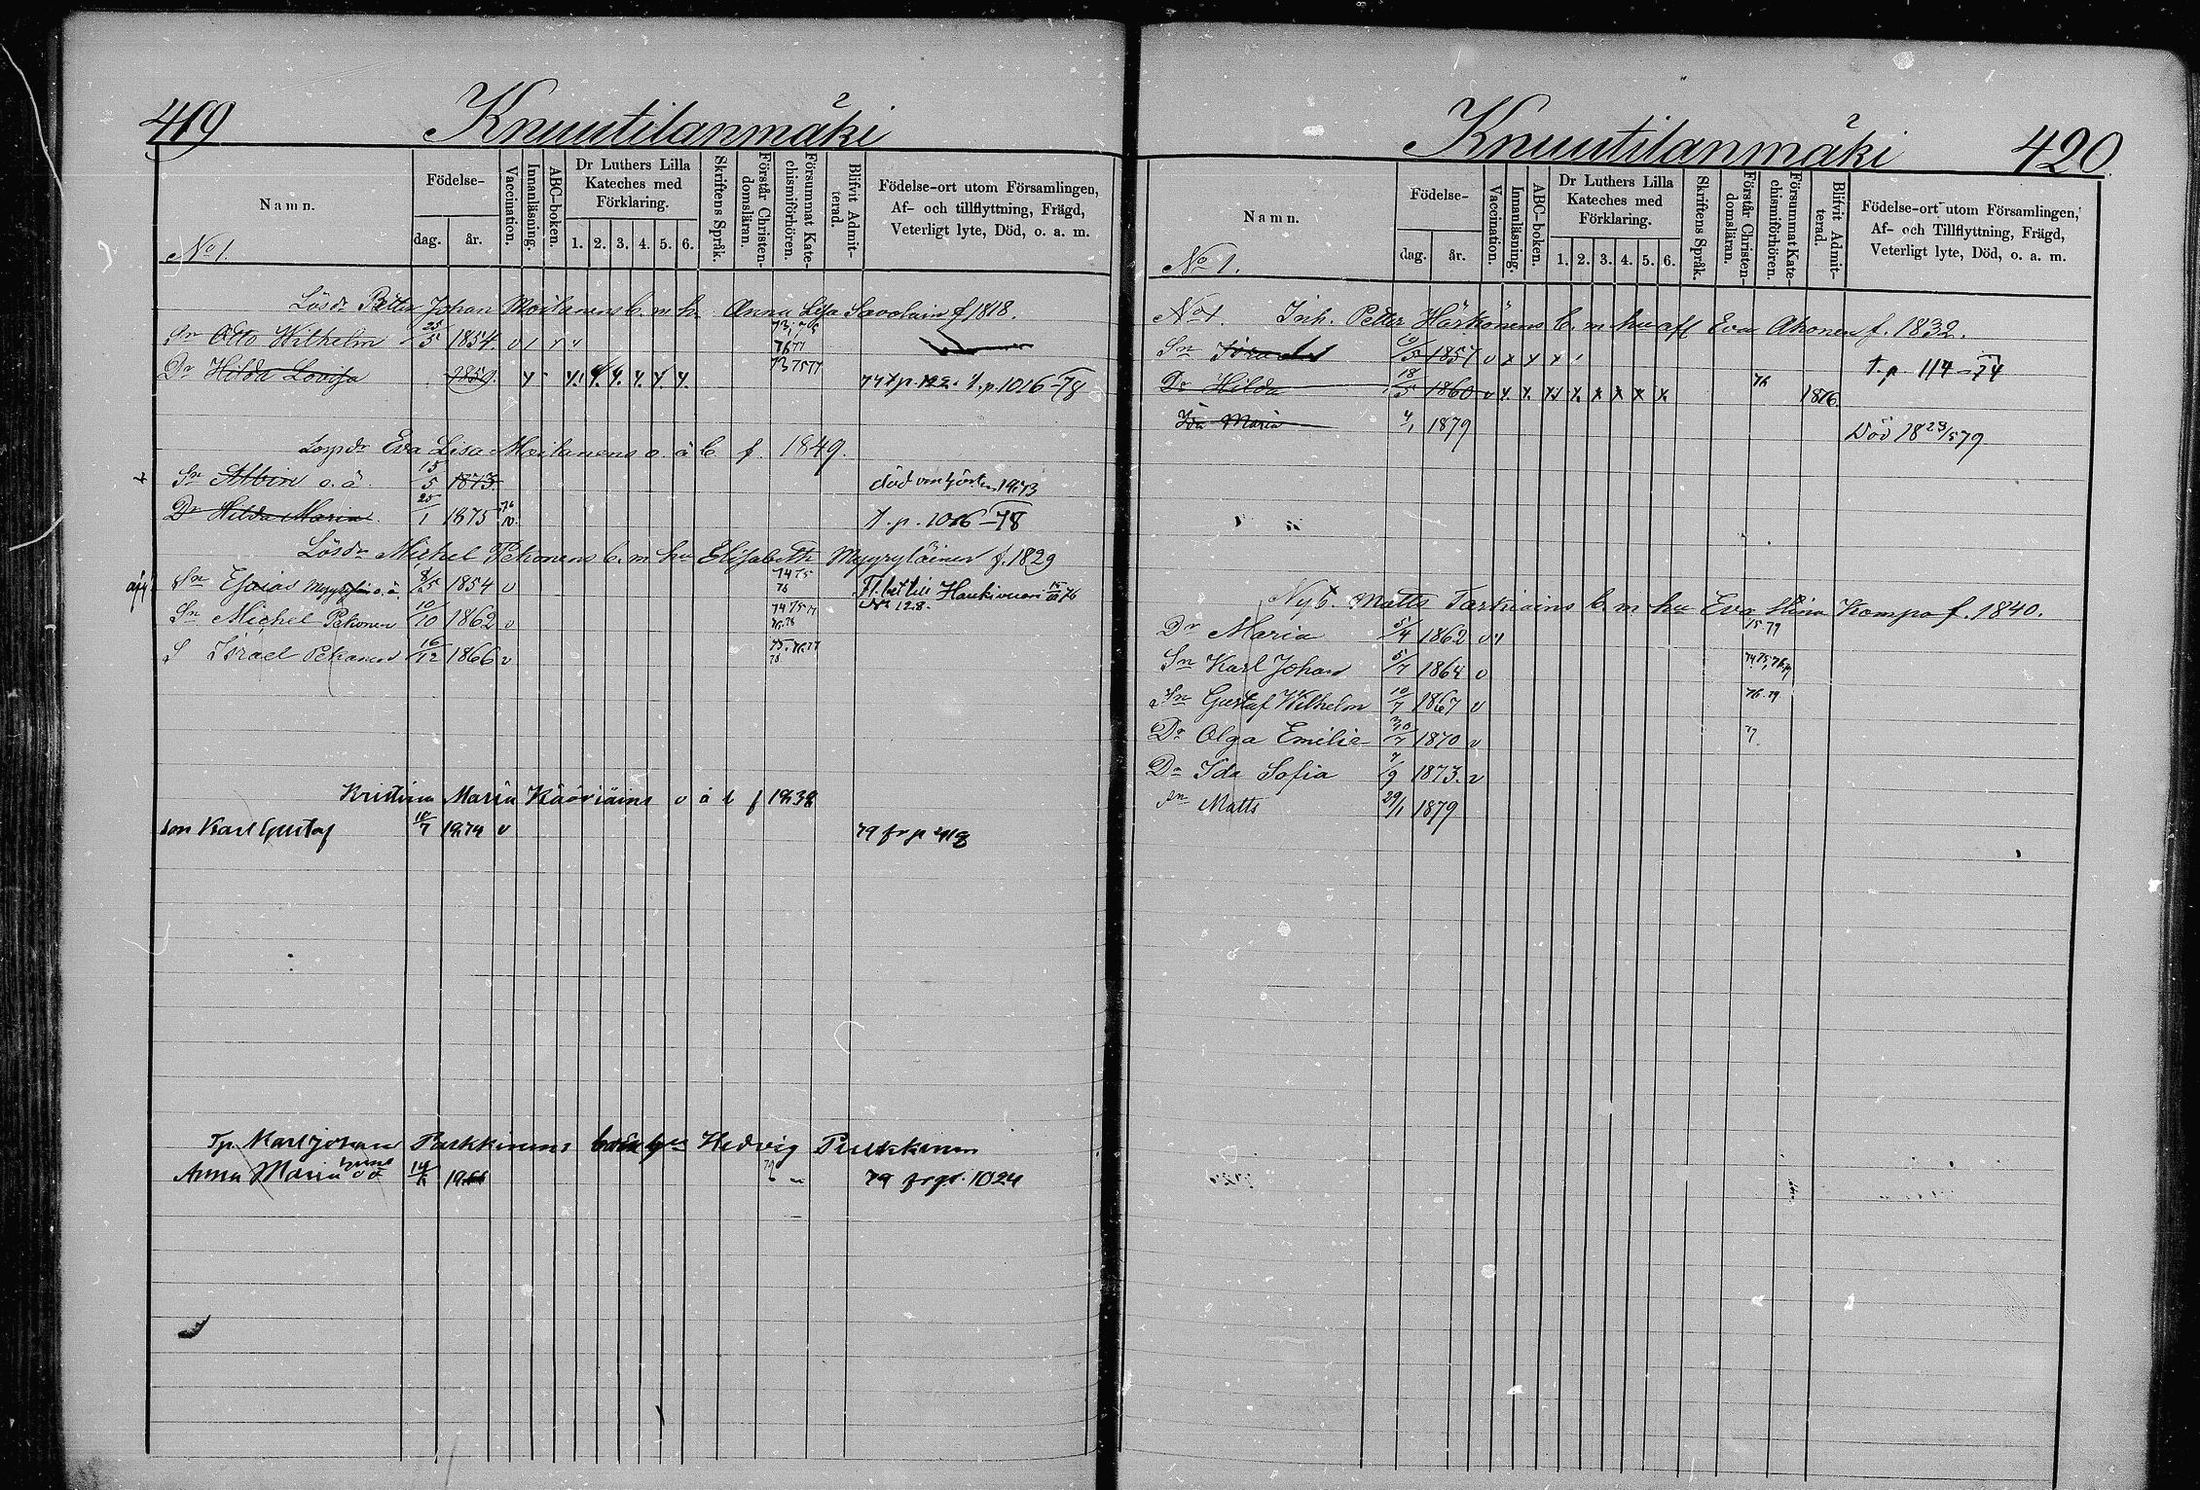 419 Knuutilanmäki
Namn. Födelse- dag. år. Vaccination. Innanläsning. ABC-boken. Dr Luthers Lilla Kateches med Förklaring. 1. 2. 3. 4. 5. 6. Skriftens Språk. Förstår Christendomsläran. Försummat Katechismiförhören. Blifvit Admitterad. Födelse-ort utom Församlingen, Af- och tillflyttning, Frägd, Veterligt lyte, Död, o. a. m.
No 1.
Lösdr Petter Johan Moilanens b. m. h. Anna Lisa Savolain f 1818.
Sn Otto Wilhelm 25/5 1854. v
Dr Hilda Lovisa 1859. 73 75 77 t.p. 1016-78
Eva Lisa Moilanens o. ä b f. 1849.
Sn Albin o. ä. 15/5 1873.
Dr Hilda Maria 25/1 1875 76 v. t.p. 1016-78
Lösdr Michel Pekonens b. m. hu Elisabeth Myyryläinen f. 1829
Sn Esaias o. ä. 1854 v 74 75 76 Haukivuori 76
No 128.
Sn Michel Pekonen 10/10 1862 v 74 75 77
S Israel Pekonen 16/12 1866 v
Kristina Maria Kääriäins o ä b f 1838
Son Karl Gustaf 10/7 1874 v 79 fr p 418
Karl Johan Parkkinens hu Hedvig
Anna Maria 79 79 fr pr. 1024
Knuutilanmäki 420
Namn. Födelse- dag. år. Vaccination. Innanläsning. ABC-boken. Dr Luthers Lilla Kateches med Förklaring. 1. 2. 3. 4. 5. 6. Skriftens Språk. Förstår Christendomsläran. Försummat Katechismiförhören. Blifvit Admitterad. Födelse-ort utom Församlingen, Af- och Tillflyttning, Frägd, Veterligt lyte, Död, o. a. m.
No 1.
No 1. Inh. Petter Härkönens b. m. hu afl Eva Ahonen f. 1832.
Sn Israel 1857 v x x x t.p. 114-74
Dr Hilda 18/5 1860 v x x x x x x x x 76 1876.
Ida Maria 4/1 1879 Död 18 23/5 79
Nyb. Matts Tarkiains b m hu Eva Stina Kompo f. 1840.
Dr Maria 5/4 1862 v 75. 79
Sn Karl Johan 5/7 1864 v
Sn Gustaf Wilhelm 10/7 1867 v 76. 79
Dr Olga Emilie 30/7 1870 v
Dr Ida Sofia 7/9 1873. v
Sn Matts 29/1 1879